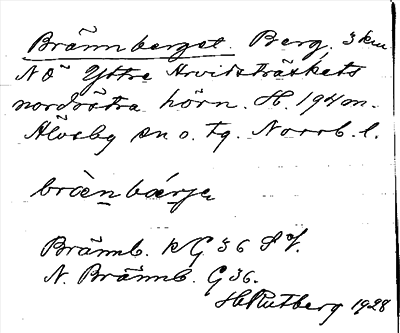 Brännberget. Berg, 3 km
NÖ Yttre Arvidsträskets
nordöstra hörn. H. 194 m.
Älvsby sn o. tg. Norrb. l.
bràenbárje
Brännb. kG 36 SV.
N. Brännb. G 36.
H. Rutberg 1928